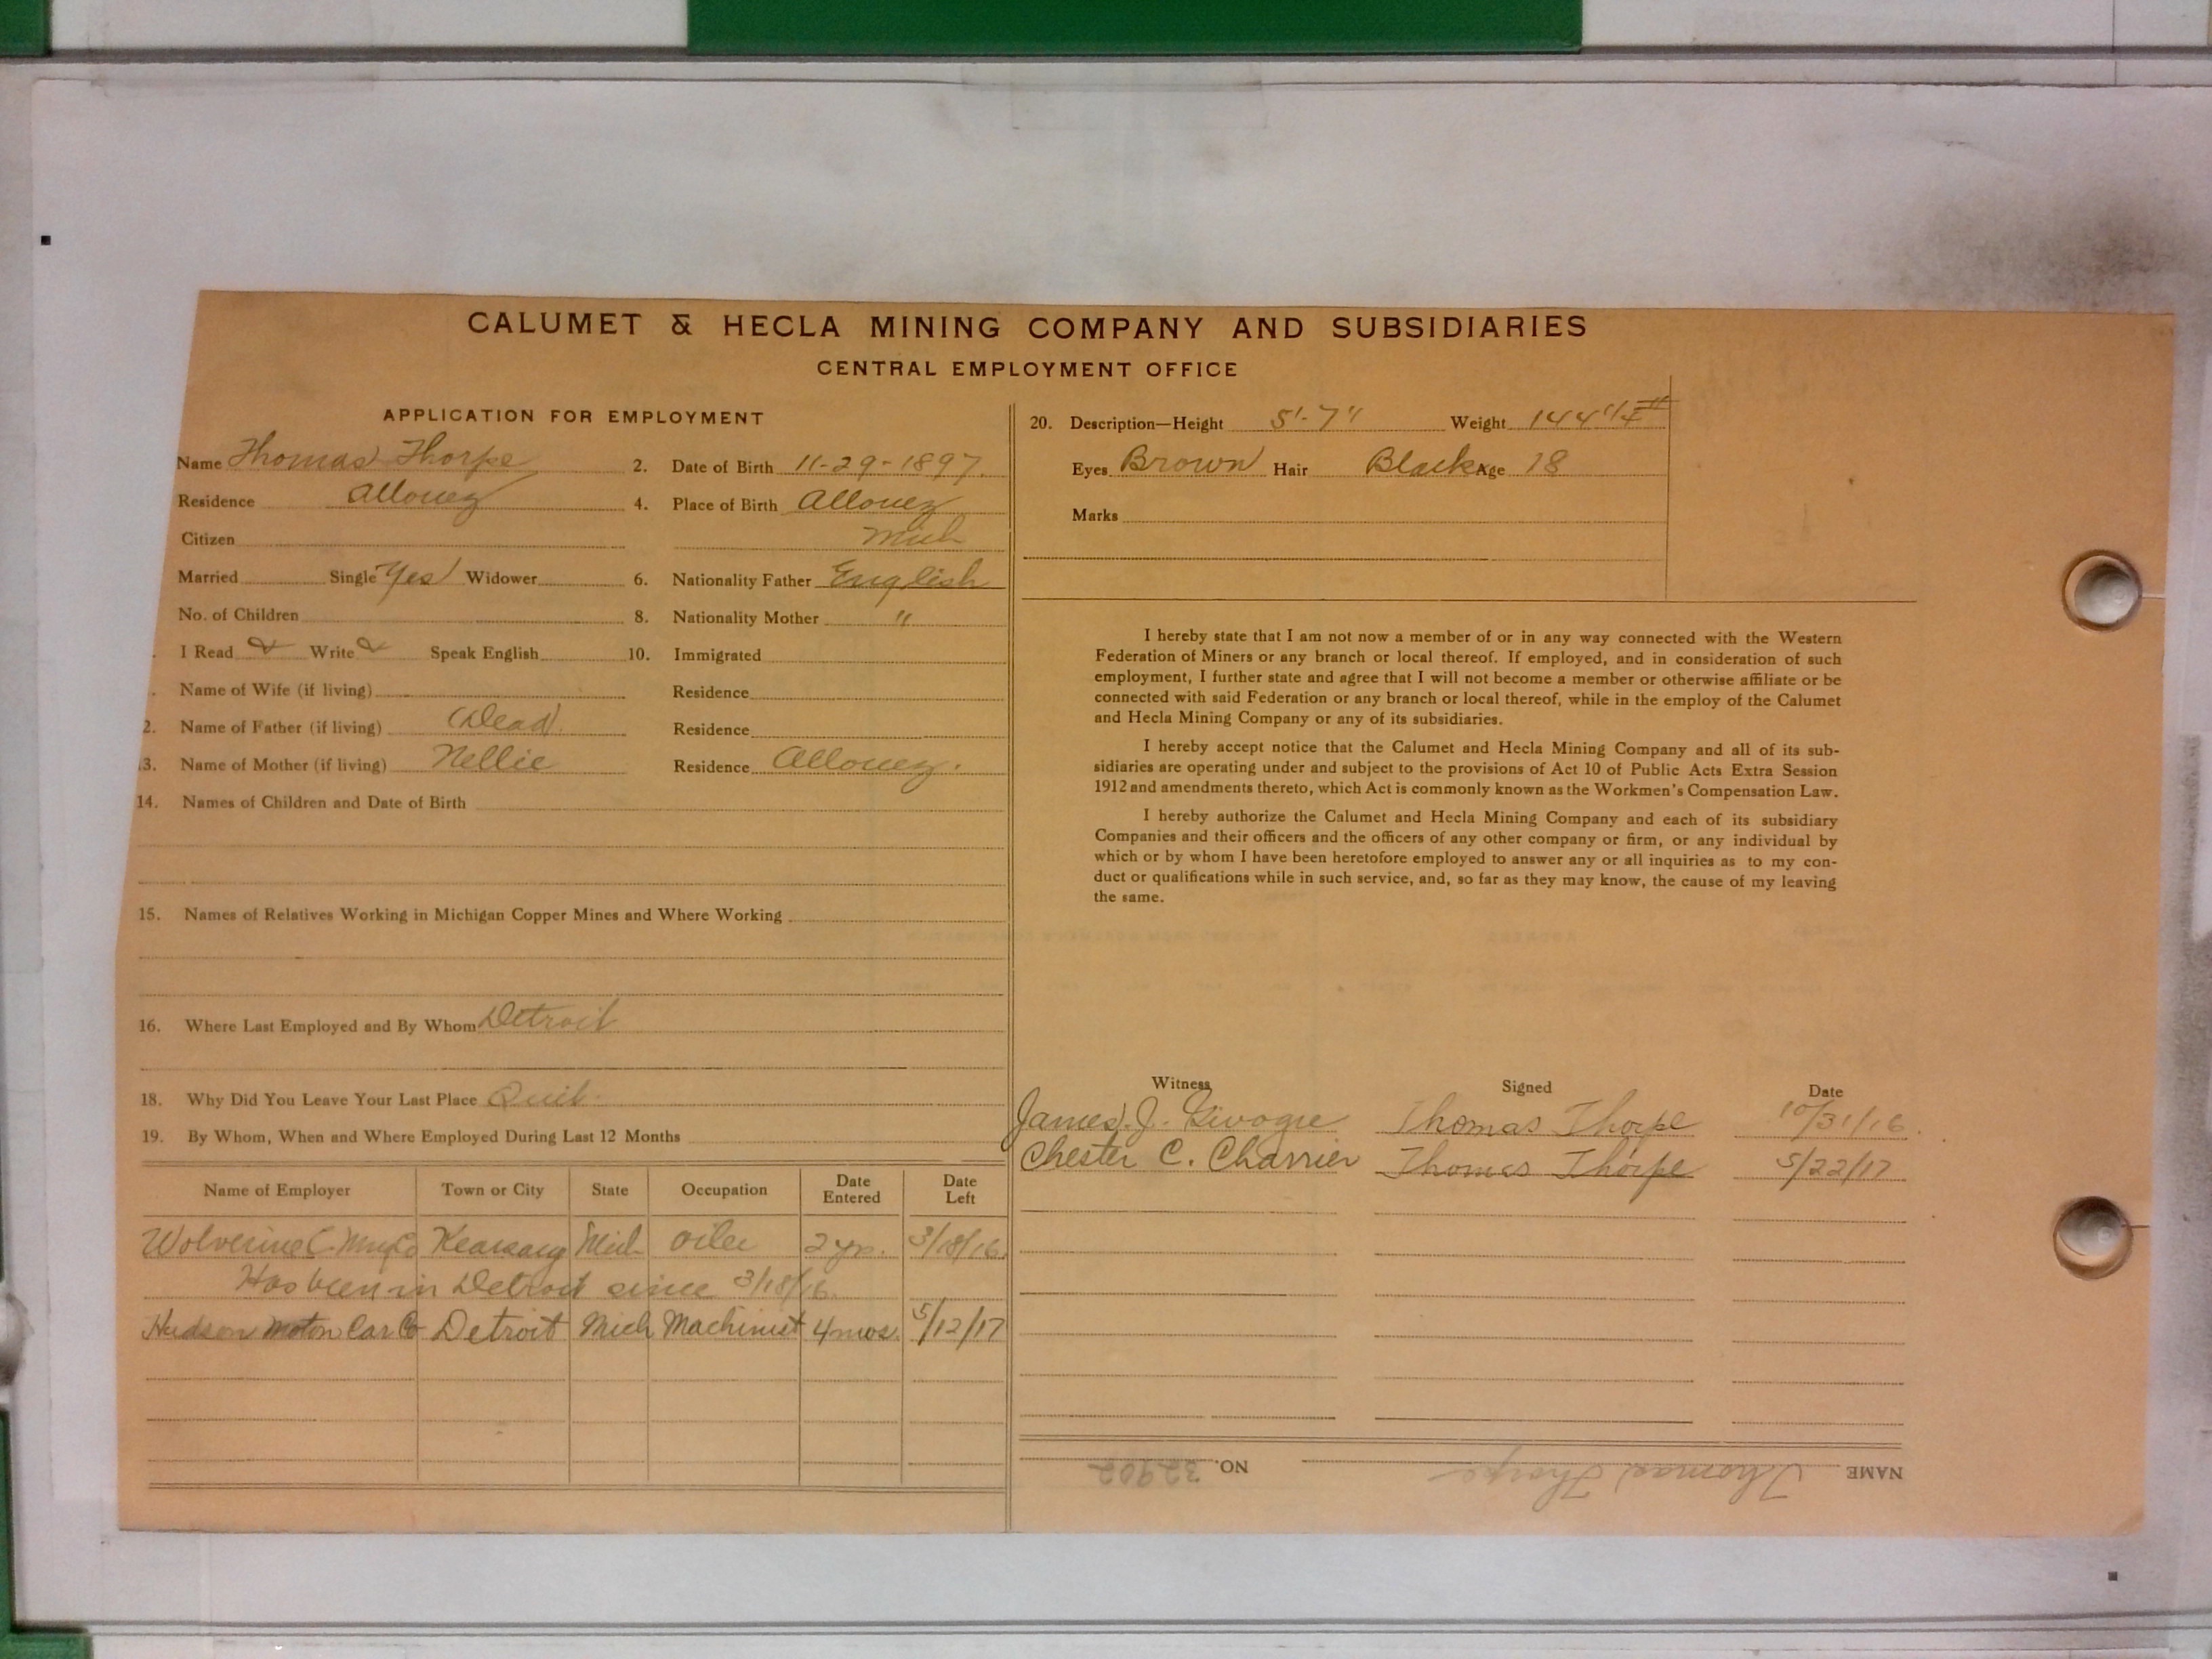 CALUMET & HECLA MINING COMPANY AND SUBSIDIARIES
CENTRAL EMPLOYMENT OFFICE
APPLICATION FOR EMPLOYMENT
Name Thomas Thorpe 2. Date of Birth 11-29-1897
Residence Allouez 4. Place of Birth Allouez
Citizen Mich
Married Single Yes Widower 6. Nationality Father English
No. of Children 8. Nationality Mother "
I Read Write Speak English 10. Immigrated
Name of Wife (if living) Residence
2. Name of Father (if living) (Dead) Residence
3. Name of Mother (if living) Nellie Residence Allouez.
14. Names of Children and Date of Birth
15. Names of Relatives Working in Michigan Copper Mines and Where Working
16. Where Last Employed and By Whom Detroit
18. Why Did You Leave Your Last Place Quit.
19. By Whom, When and Where Employed During Last 12 Months
Name of Employer Town or City State Occupation Date Entered Date Left
Wolverine C. Kearsarg Mich oiler 2 yrs. 3/18/16
Has been in Detroit since 3/18/16.
Hudson Motor Car Co Detroit Mich Machinist 4 mos. 5/12/17
20. Description—Height 5'-7" Weight 144 1/4 #
Eyes Brown Hair Black Age 18
Marks
I hereby state that I am not now a member of or in any way connected with the Western
Federation of Miners or any branch or local thereof. If employed, and in consideration of such
employment, I further state and agree that I will not become a member or otherwise affiliate or be
connected with said Federation or any branch or local thereof, while in the employ of the Calumet
and Hecla Mining Company or any of its subsidiaries.
I hereby accept notice that the Calumet and Hecla Mining Company and all of its sub-
sidiaries are operating under and subject to the provisions of Act 10 of Public Acts Extra Session
1912 and amendments thereto, which Act is commonly known as the Workmen's Compensation Law.
I hereby authorize the Calumet and Hecla Mining Company and each of its subsidiary
Companies and their officers and the officers of any other company or firm, or any individual by
which or by whom I have been heretofore employed to answer any or all inquiries as to my con-
duct or qualifications while in such service, and, so far as they may know, the cause of my leaving
the same.
Witness Signed Date
James J. Thomas Thorpe 10/31/16
Chester C. Charrier Thomas Thorpe 5/22/17
NAME Thomas Thorpe NO. 32902